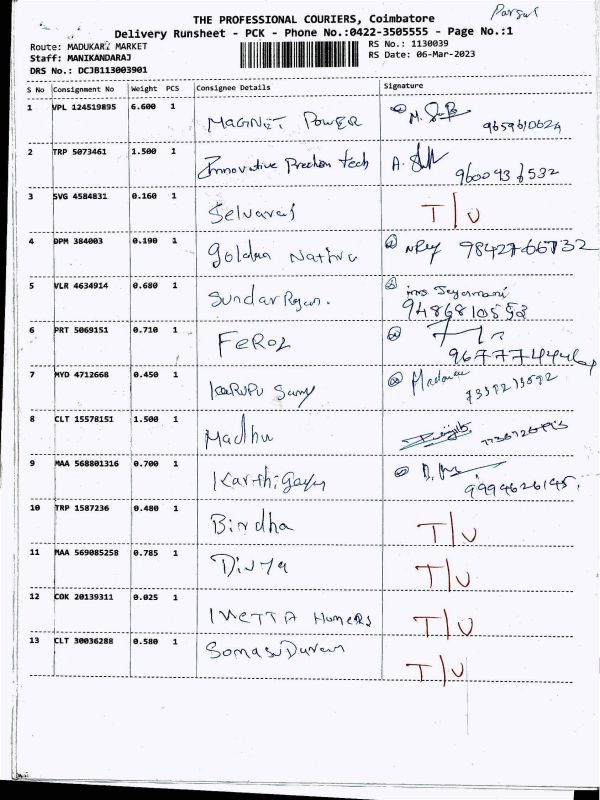 Parsul
THE PROFESSIONAL COURIERS, Coimbatore
Delivery Runsheet - PCK - Phone No.:0422-3505555 - Page No.:1
Route: MADUKARI MARKET
RS No.: 1130039
Staff: MANIKANDARAJ
RS Date: 06-Mar-2023
DRS No.: DCJB113003901
S No Consignment No Weight PCS Consignee Details Signature
1 VPL 124519895 6.600 1 MAGNET POWER 9659610624
2 TRP 5073461 1.500 1 Innovative Prection tech A. 9600936532
3 SVG 4584831 0.160 1 Selvaraj T/U
4 DPM 384003 0.190 1 goldan Native 9842766732
5 VLR 4634914 0.680 1 Sundar Rajan. mrs. Jeyamani
9486810553
6 PRT 5069151 0.710 1 FeROZ
7 MYD 4712668 0.450 1 KARUPU Samy
8 CLT 15578151 1.500 1 Madhu
9 MAA 568801316 0.700 1 Karthigayn 9994626145.
10 TRP 1587236 0.480 1 Bindha T/U
11 MAA 569085258 0.785 1 Divya T/U
12 COK 20139311 0.025 1 T/U
13 CLT 30036288 0.580 1 Somasu Duram T/U